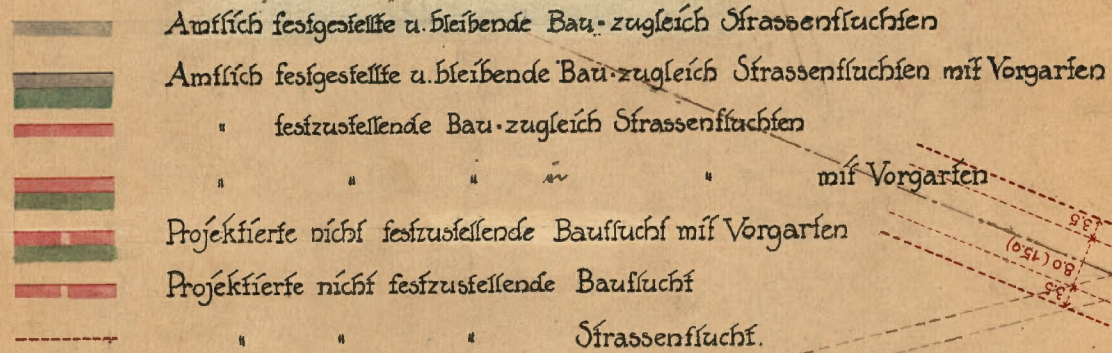 Amtlich festgestellte u. bleibende Bau-zugleich Strassenfluchten
Amtlich festgestellte u. bleibende Bau-zugleich Strassenfluchten mit Vorgarten
" festzustellende Bau-zugleich Strassenfluchten
" " " " " mit Vorgarten
Projektierte nicht festzustellende Bauflucht mit Vorgarten
Projektierte nicht festzustellende Bauflucht
" " " Strassenflucht.
3.5
8.0 (15.0)
3.5